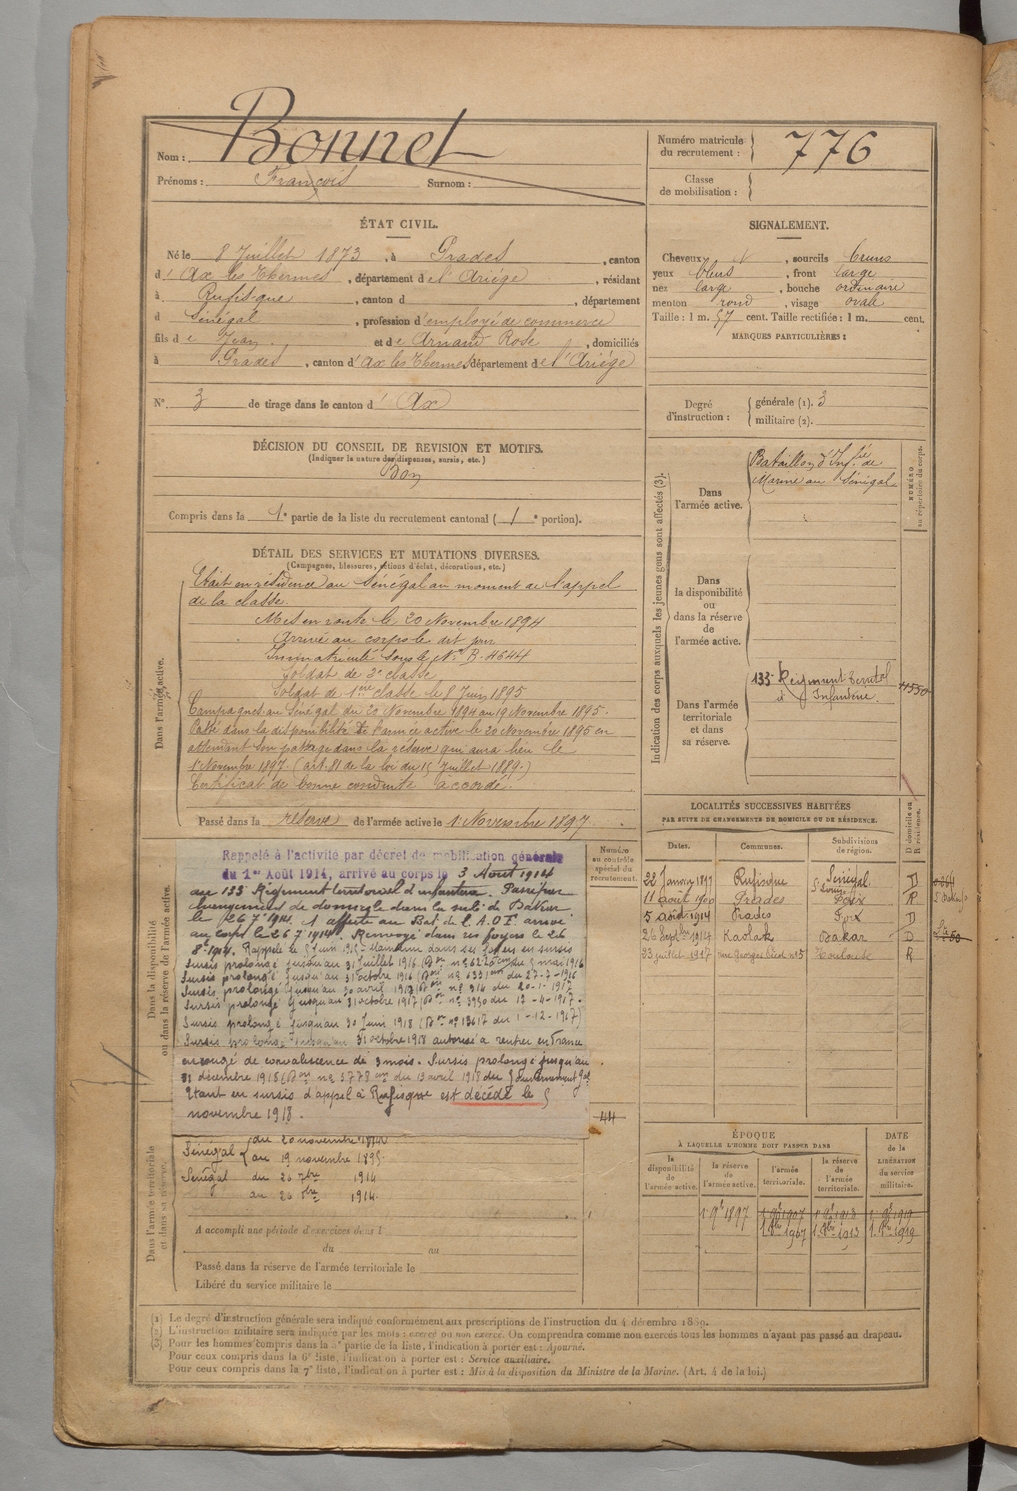 Nom : Bonnet
Prénoms : François Surnom :
Numéro matricule du recrutement : 776
Classe de mobilisation :
ÉTAT CIVIL.
Né le 8 Juillet 1873, à Prades, canton
d' Ax les Thermes, département de l'Ariège, résidant
à Rufisque, canton d , département
d Sénégal, profession d'employé de commerce
fils de Jean et de Arnaud Rose, domiciliés
à Prades, canton d'Ax les Thermes département de l'Ariège
N° 3 de tirage dans le canton d' Ax
SIGNALEMENT.
Cheveux , sourcils bruns
yeux bleus, front large
nez large, bouche ordinaire
menton rond, visage ovale
Taille : 1 m. 57 cent. Taille rectifiée : 1 m. cent.
MARQUES PARTICULIÈRES :
Degré d'instruction : générale (1). 3
militaire (2).
DÉCISION DU CONSEIL DE REVISION ET MOTIFS.
(Indiquer la nature des dispenses, sursis, etc.)
Bon
Compris dans la 1e partie de la liste du recrutement cantonal (1e portion).
DÉTAIL DES SERVICES ET MUTATIONS DIVERSES.
(Campagnes, blessures, actions d'éclat, décorations, etc.)
Dans l'armée active.
Était en résidence au Sénégal au moment de l'appel
de la classe.
Mis en route le 20 Novembre 1894
Arrivé au corps le dit jour
Immatriculé sous le N° B. 4644
Soldat de 2e classe
Soldat de 1ère classe le 8 Juin 1895
Campagnes au Sénégal du 20 Novembre 1894 au 19 Novembre 1895.
Passé dans la disponibilité de l'armée active le 20 Novembre 1895 en
attendant son passage dans la réserve qui aura lieu le
1 Novembre 1897. (art. 81 de la loi du 15 Juillet 1889.)
Certificat de bonne conduite accordé.
Passé dans la réserve de l'armée active le 1 Novembre 1897.
Dans la disponibilité ou dans la réserve de l'armée active.
Numéro au contrôle spécial du recrutement.
Rappelé à l'activité par décret de mobilisation générale
du 1er Août 1914, arrivé au corps le 3 Août 1914
au 133 Régiment territorial d'infanterie. Passé par
changement de domicile dans la sub. de Dakar
le 26 7bre 1914. affecté au Bat. de l'A.O.F. arrivé
au corps le 26 7bre 1914. Renvoyé dans ses foyers le 26
8bre 1914. Rappelé le Juin 1915 dans ses foyers en sursis
Sursis prolongé jusqu'au 31 Juillet 1916 mai 1916
Sursis prolongé jusqu'au 31 octobre 1916 du 27-7-1916
Sursis prolongé jusqu'au 30 avril 1917 n° 914 du 20-1-1917
Sursis prolongé jusqu'au 31 octobre 1917 n° 3930 du 12-4-1917.
Sursis prolongé jusqu'au 30 Juin 1918 n° 13617 du 1-12-1917)
Sursis prolongé jusqu'au 31 octobre 1918 autorisé à rentrer en France
en congé de convalescence de 3 mois. Sursis prolongé jusqu'au
31 décembre 1918 n° 3778 du 13 avril 1918 du Gouvernement Gal
Étant en sursis d'appel à Rufisque est décédé le 5
novembre 1918.
44
Dans l'armée territoriale et dans sa réserve.
Sénégal du 20 novembre 1894
au 19 novembre 1895.
Sénégal du 26 7bre 1914
au 26 8bre 1914.
A accompli une période d'exercices dans l
du au
Passé dans la réserve de l'armée territoriale le
Libéré du service militaire le
Indication des corps auxquels les jeunes gens sont affectés (3).
NUMÉRO au répertoire du corps.
Dans l'armée active.
Bataillon d'Infie de
Marine au Sénégal
Dans la disponibilité ou dans la réserve de l'armée active.
Dans l'armée territoriale et dans sa réserve.
133e Régiment Territal
d'Infanterie.
LOCALITÉS SUCCESSIVES HABITÉES
PAR SUITE DE CHANGEMENTS DE DOMICILE OU DE RÉSIDENCE.
D domicile ou R résidence.
Dates. Communes. Subdivisions de région.
22 Janvier 1897 Rufisque Sénégal St Louis D
11 août 1900 Prades Foix R
5 août 1914 Prades Foix D
26 Septbre 1914 Kaolak Dakar D
23 juillet 1917 rue Georges Picot n° 5 Toulouse R
ÉPOQUE
À LAQUELLE L'HOMME DOIT PASSER DANS
la disponibilité de l'armée active. la réserve de l'armée active. l'armée territoriale. la réserve de l'armée territoriale.
DATE de la LIBÉRATION du service militaire.
1 9bre 1897 1 9bre 1907 1 9bre 1913 1 9bre 1919
1 8bre 1907 1 8bre 1913 1 8bre 1919
(1) Le degré d'instruction générale sera indiqué conformément aux prescriptions de l'instruction du 4 décembre 1889.
(2) L'instruction militaire sera indiquée par les mots : exercé ou non exercé. On comprendra comme non exercés tous les hommes n'ayant pas passé au drapeau.
(3) Pour les hommes compris dans la 5e partie de la liste, l'indication à porter est : Ajourné.
Pour ceux compris dans la 6e liste, l'indication à porter est : Service auxiliaire.
Pour ceux compris dans la 7e liste, l'indication à porter est : Mis à la disposition du Ministre de la Marine. (Art. 4 de la loi.)